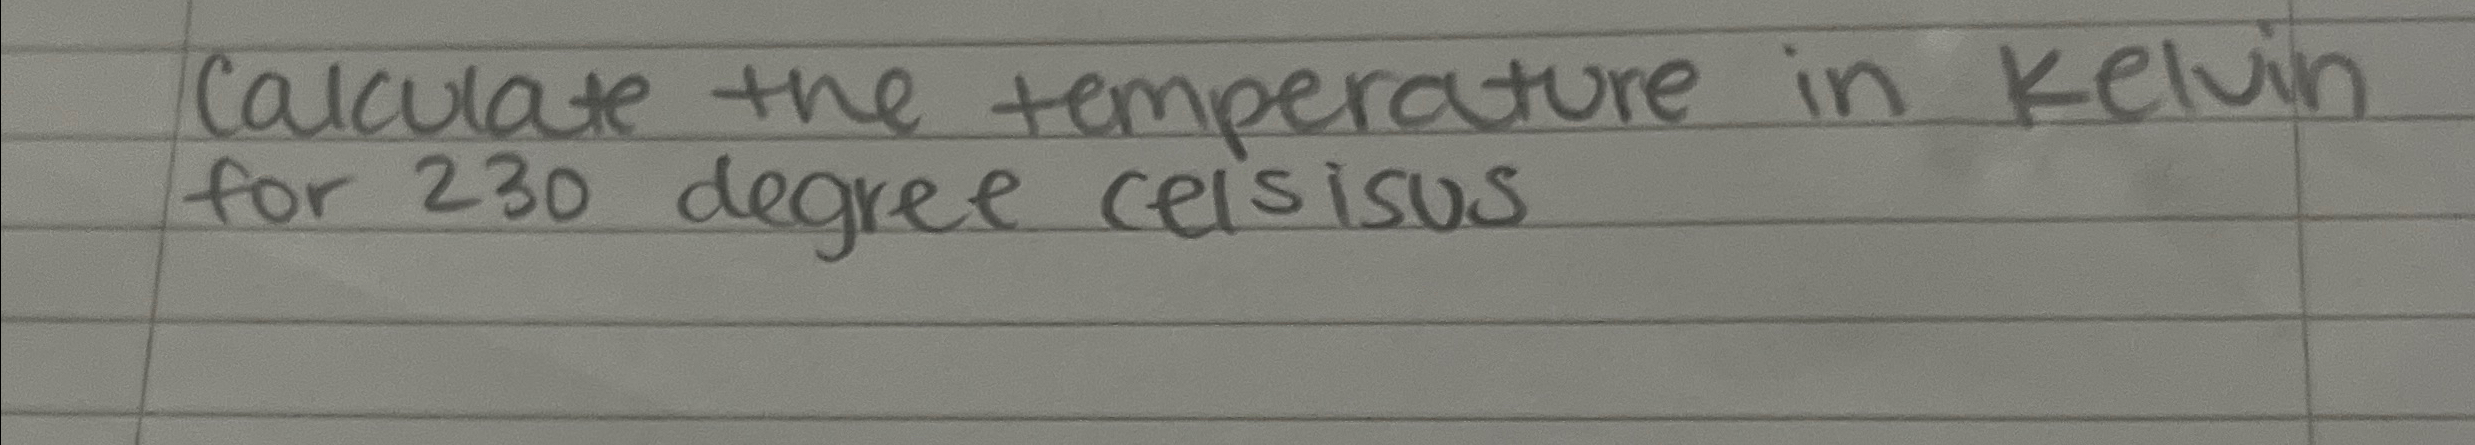 Calculate the temperature in Kelvin
for 230 degree celsisus